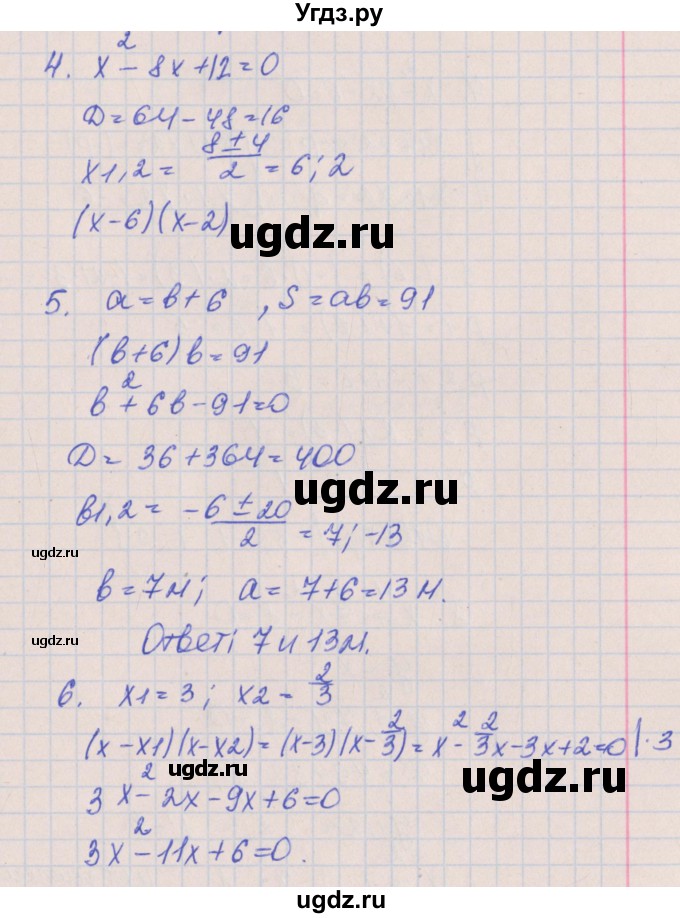 Угдз.ру
4. x² - 8x + 12 = 0
D = 64 - 48 = 16
x1,2 = (8 ± 4)/2 = 6; 2
(x-6)(x-2)
ugdz.ru
5. a = b + 6 , S = ab = 91
(b+6)b = 91
b² + 6b - 91 = 0
D = 36 + 364 = 400
ugdz.ru
b1,2 = (-6 ± 20)/2 = 7; -13
ugdz.ru
b = 7м; a = 7+6 = 13 м.
ugdz.ru
Ответ: 7 и 13м.
6. x1 = 3; x2 = 2/3
(x - x1)(x - x2) = (x-3)(x - 2/3) = x² - 2/3x - 3x + 2 = 0 |·3
ugdz.ru
ugdz.ru
3x² - 2x - 9x + 6 = 0
3x² - 11x + 6 = 0.
ugdz.ru